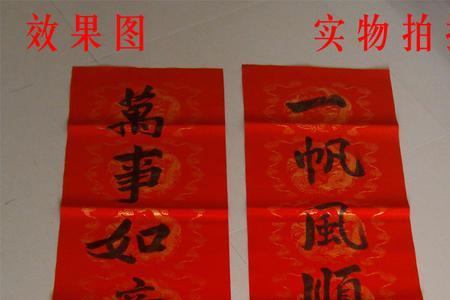 效果图
实物拍
一帆風順
萬事如